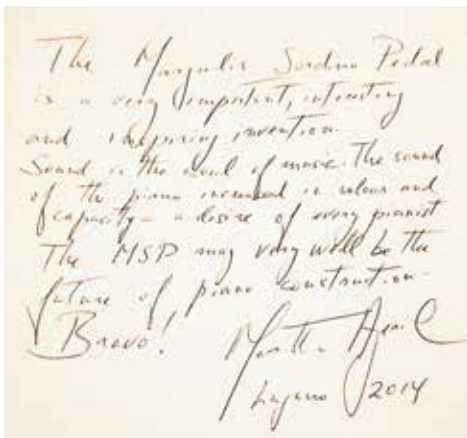 The Margulis Sordino Pedal
is a very important, interesting
and inspiring invention.
Sound is the soul of music. The sound
of the piano increased in colour and
capacity – a desire of every pianist
The MSP may very well be the
future of piano construction –
Bravo!
Martha Argerich
Lugano 2014